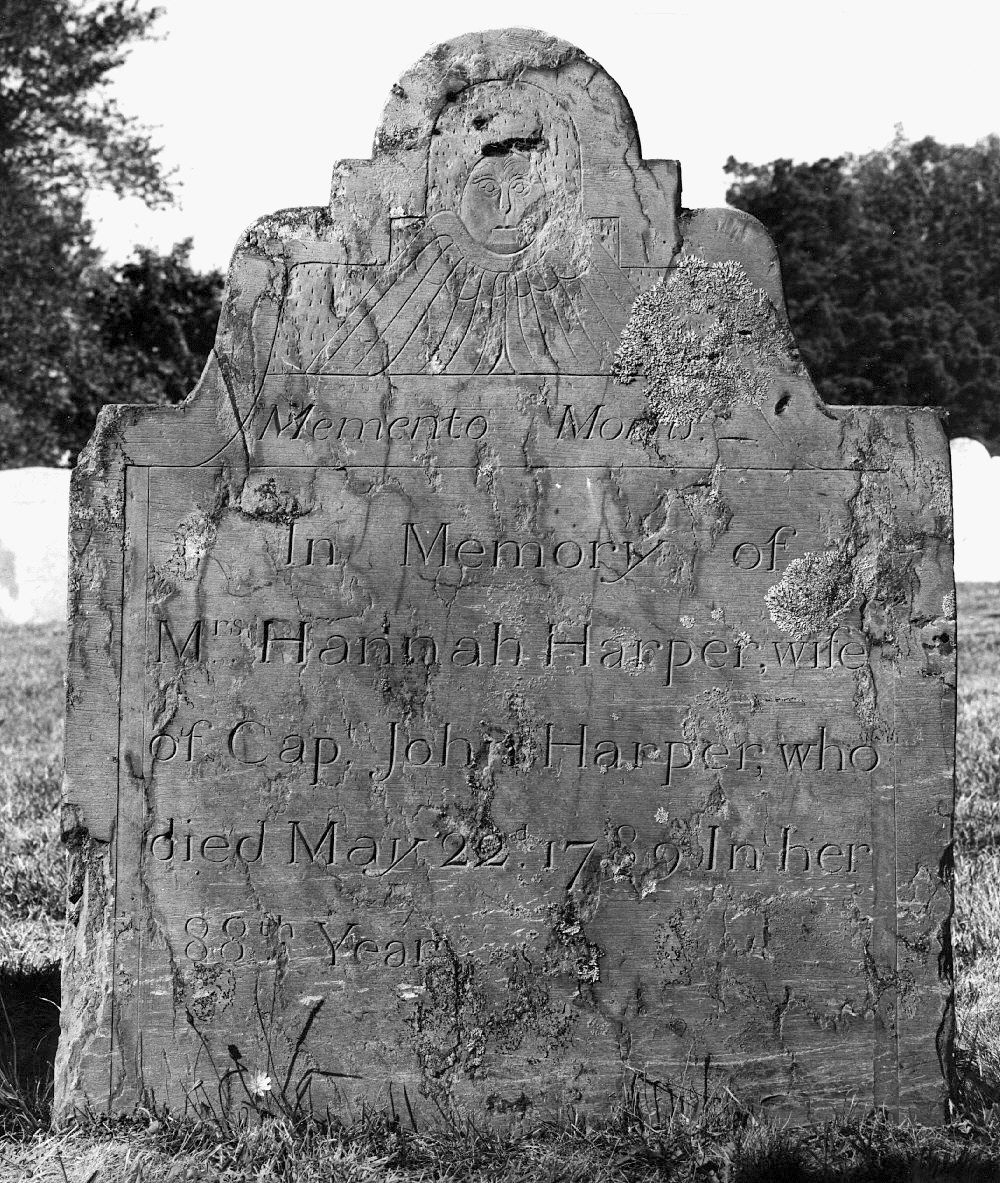 Memento Mori.
In Memory of
Mrs. Hannah Harper, wife
of Capt. John Harper, who
died May 22d. 1789 In her
88th Year